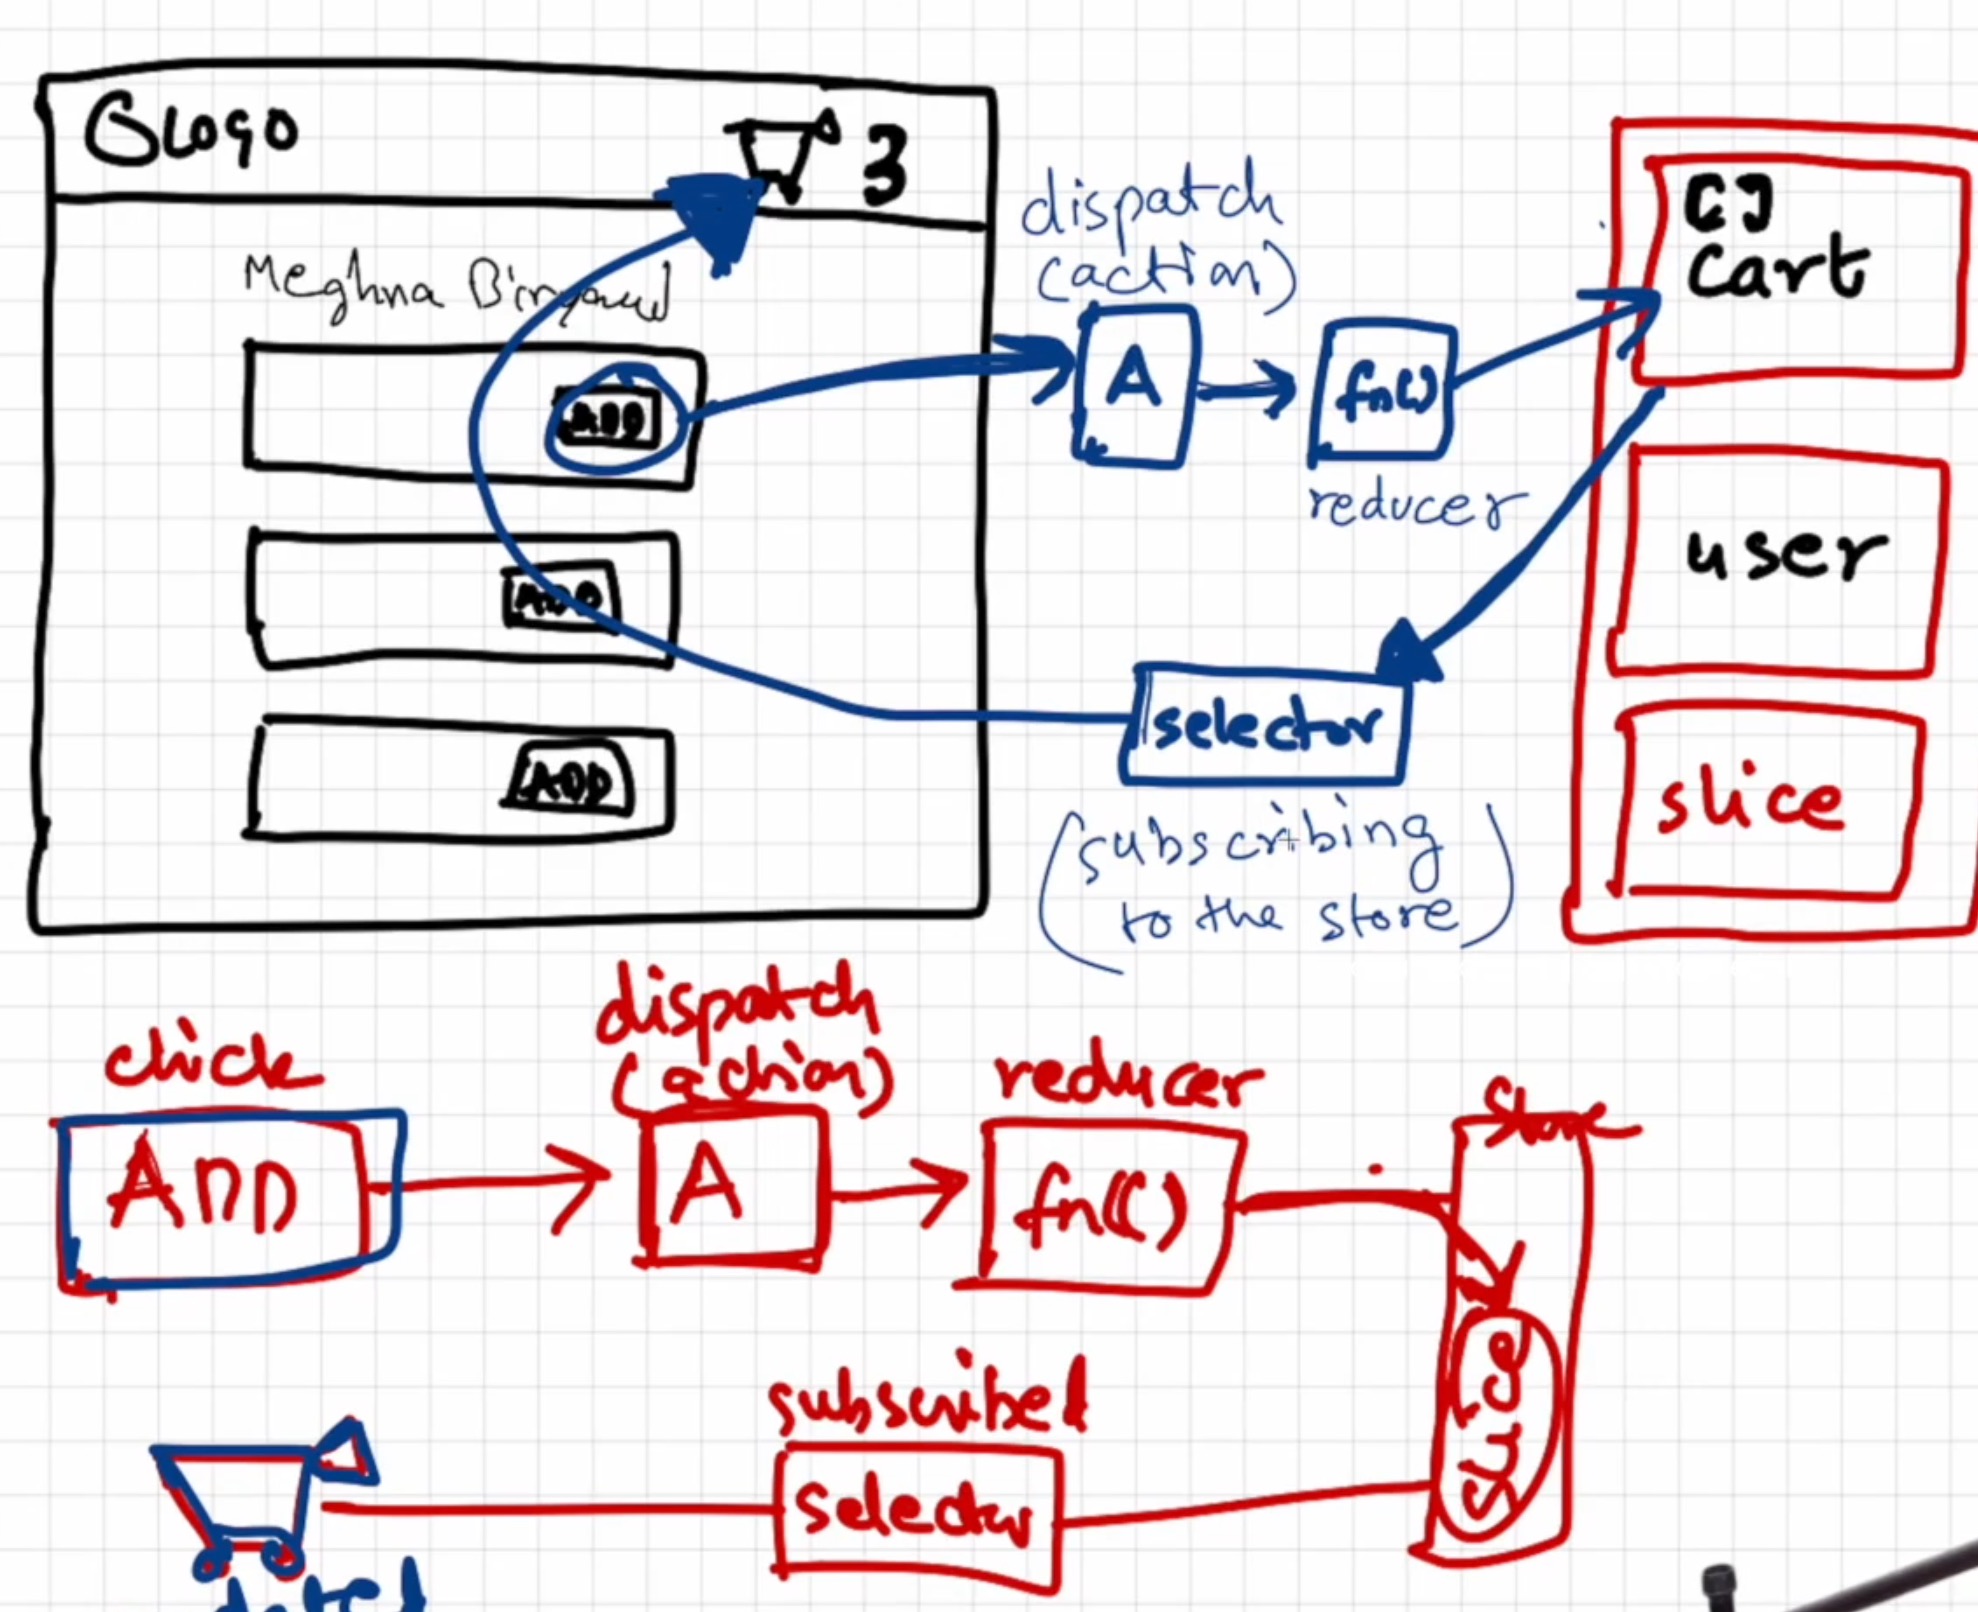 Logo
3
Meghna Biryani
ADD
ADD
ADD
dispatch
(action)
A
fn()
reducer
[]
cart
user
slice
selector
(subscribing
to the store)
click
ADD
dispatch
(action)
A
reducer
fn()
store
slice
subscribed
selector